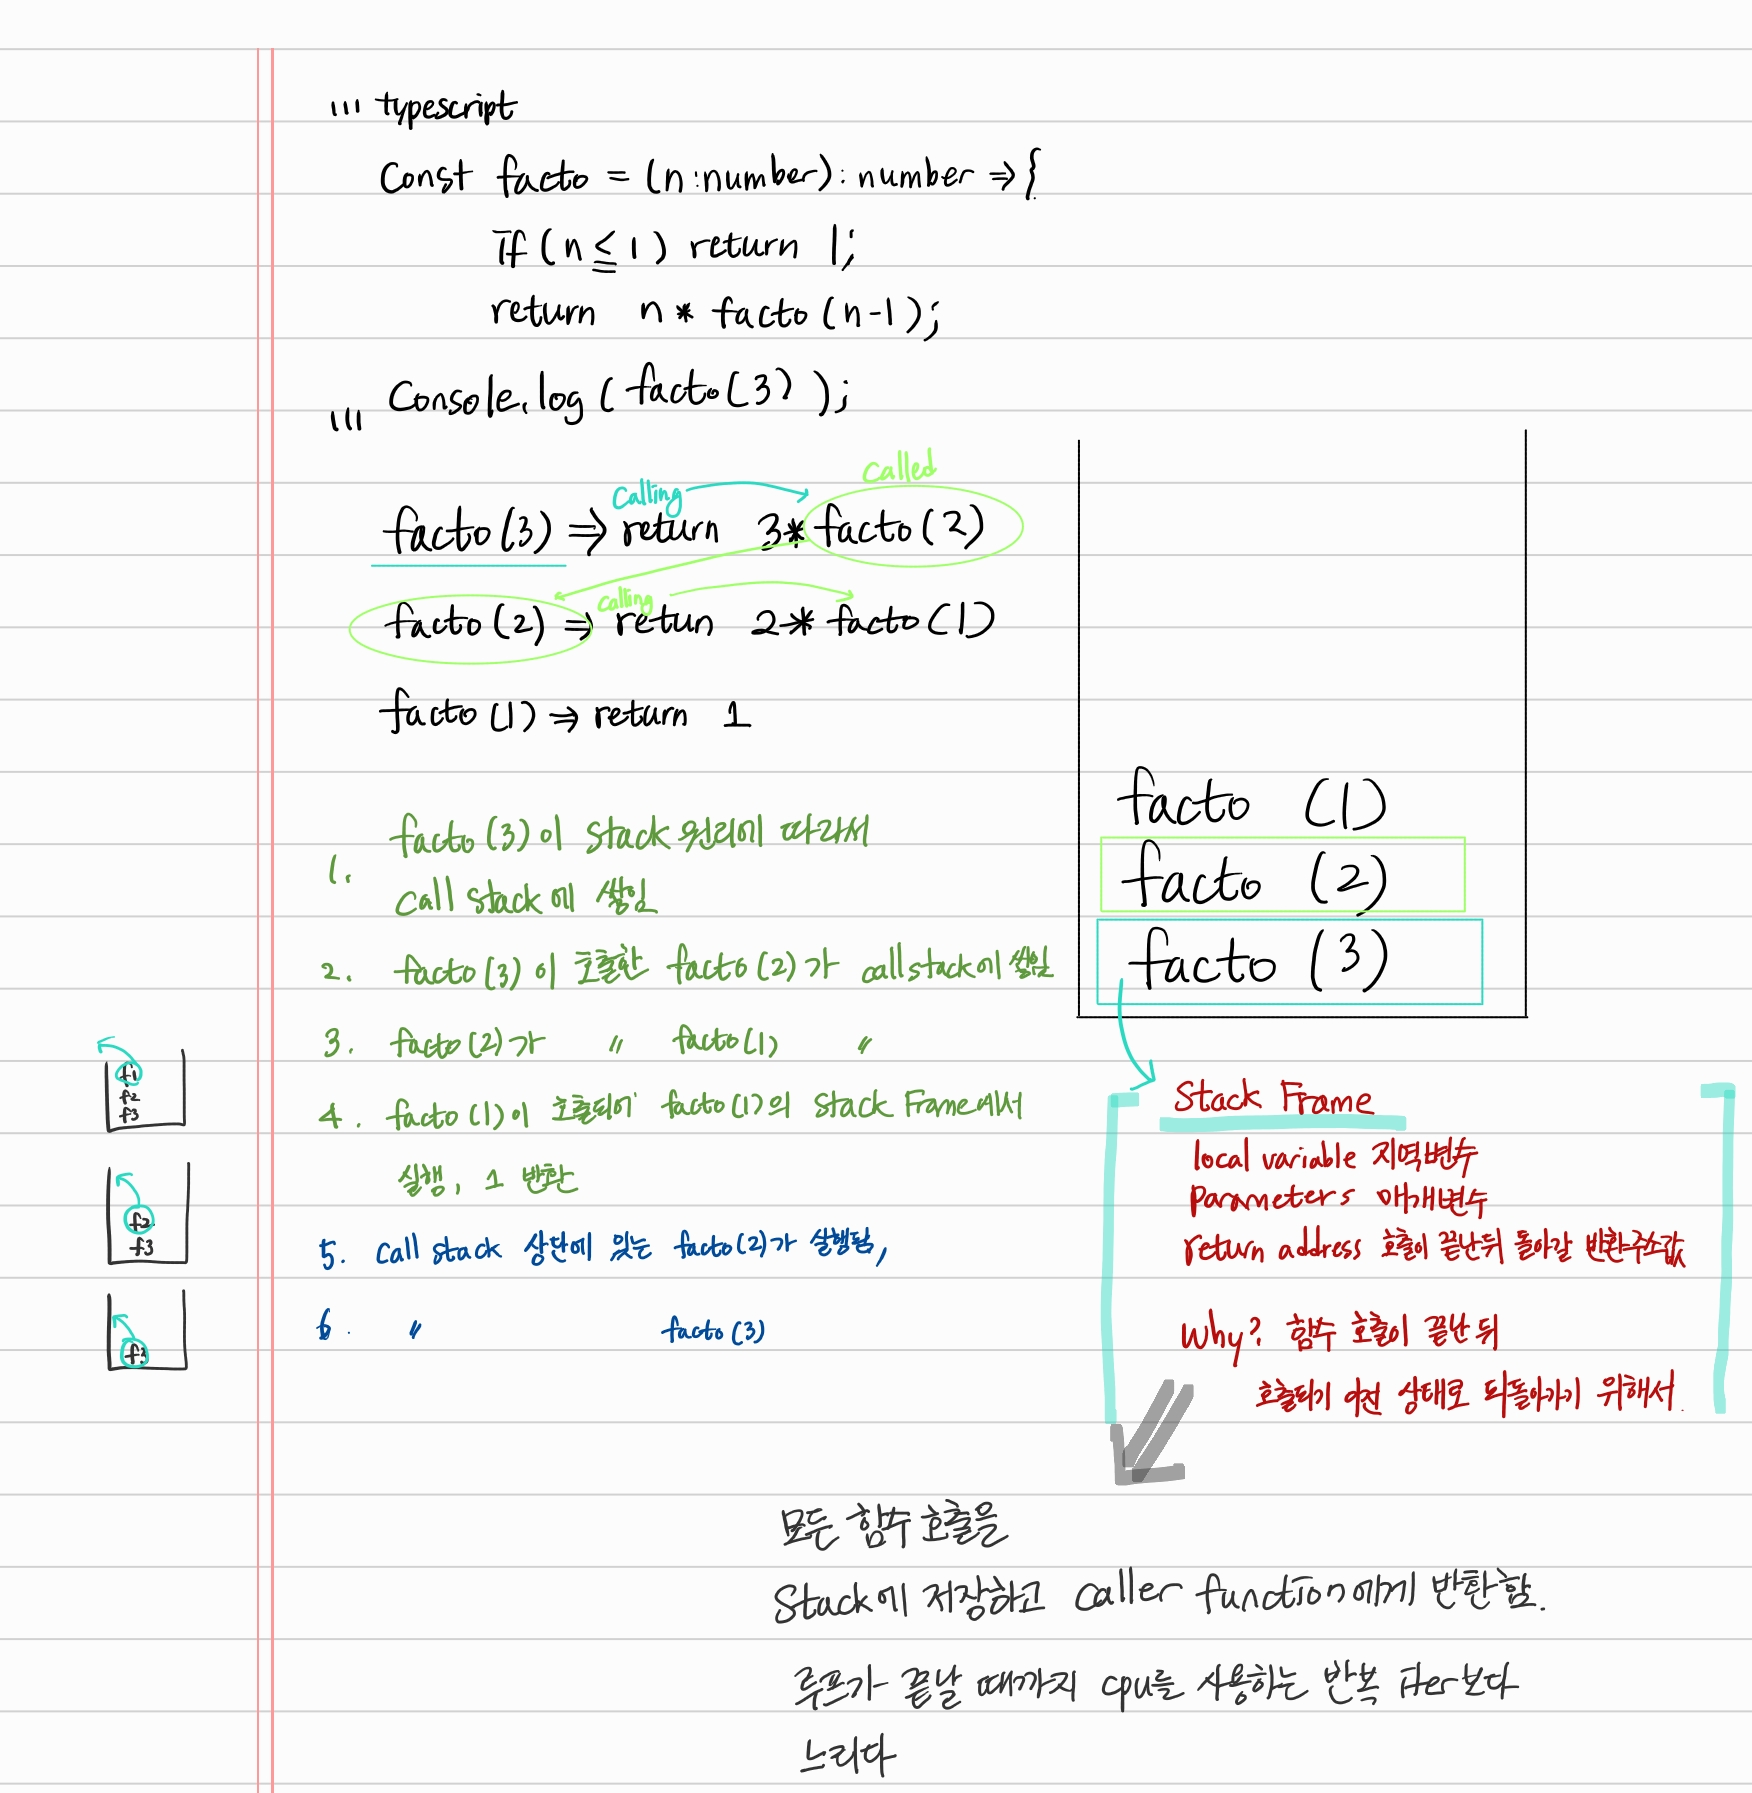 ''' typescript
Const facto = (n:number):number => {
if (n ≤ 1) return 1;
return n * facto (n-1);
Console.log ( facto(3) );
'''
Calling
Called
facto(3) => return 3* facto(2)
calling
facto(2) => retun 2* facto(1)
facto(1) => return 1
facto (1)
facto (2)
facto (3)
1. facto(3)이 Stack 원리에 따라서
call stack에 쌓임
2. facto(3)이 호출한 facto(2)가 call stack에 쌓임
3. facto(2)가 〃 facto(1) 〃
4. facto(1)이 호출되어 facto(1)의 Stack Frame에서
실행, 1 반환
5. call stack 상단에 있는 facto(2)가 실행됨,
6. 〃 facto(3)
f1
f2
f3
f2
f3
f3
Stack Frame
local variable 지역변수
Parameters 매개변수
return address 호출이 끝난뒤 돌아갈 반환주소값
Why? 함수 호출이 끝난 뒤
호출되기 이전 상태로 되돌아가기 위해서.
모든 함수 호출을
Stack에 저장하고 Caller function에게 반환함.
루프가 끝날 때까지 cpu를 사용하는 반복 iter보다
느리다